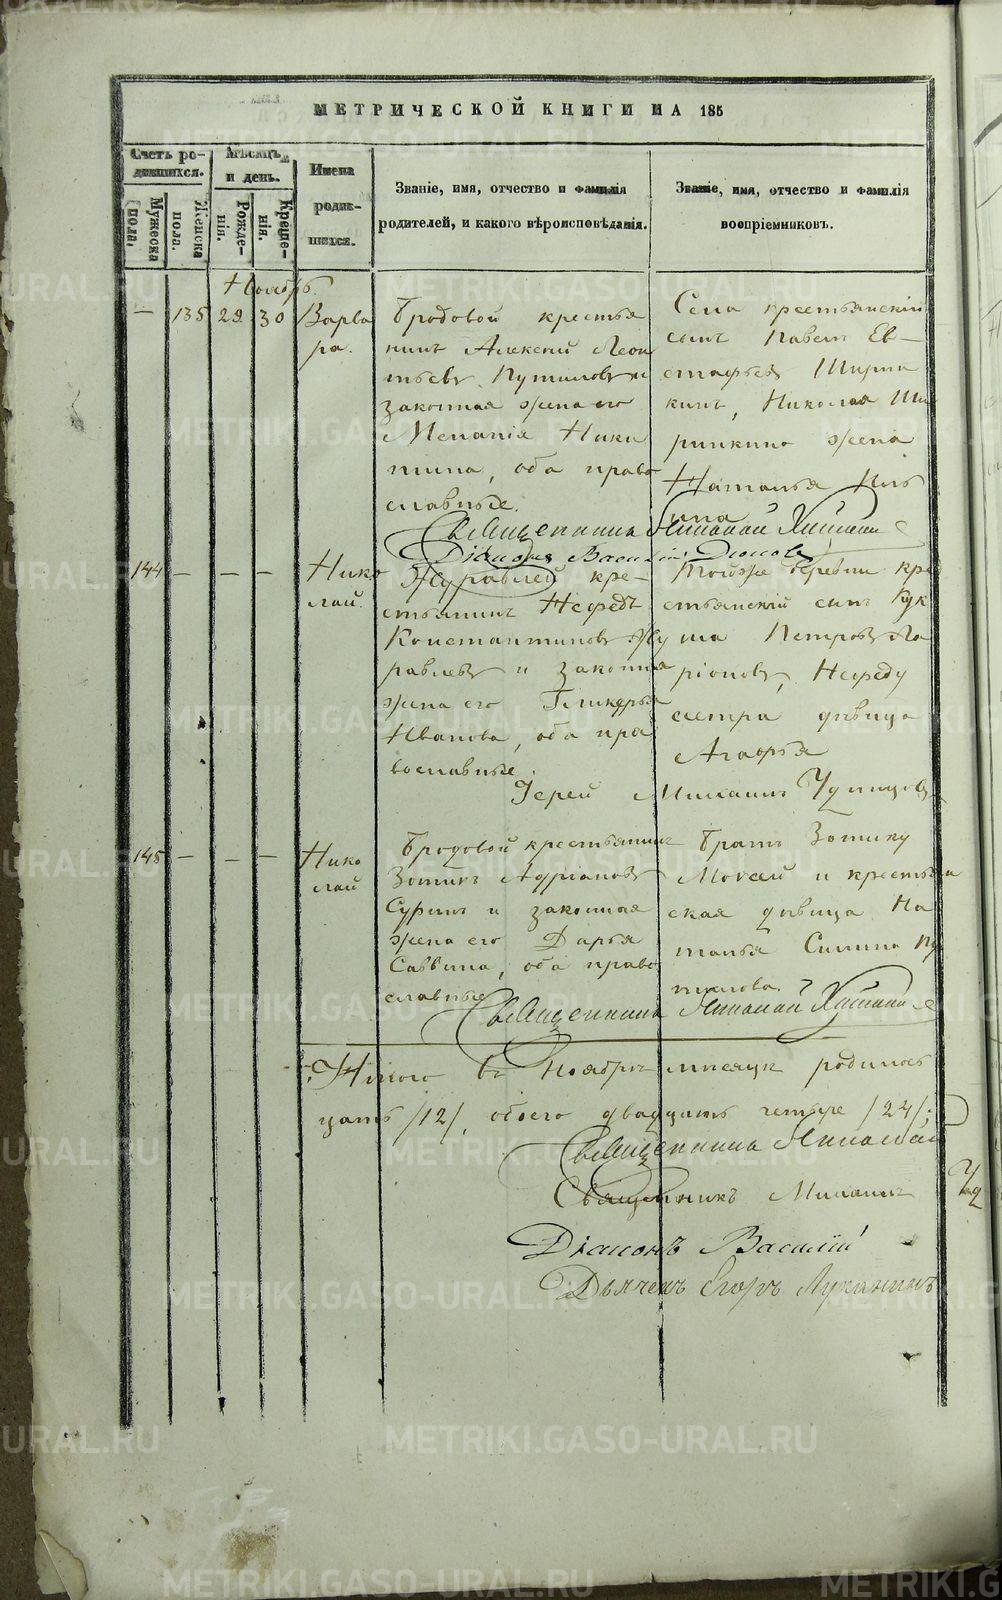 МЕТРИЧЕСКОЙ КНИГИ НА 185
Счетъ ро-
дившихся.
Мужеска
пола.
Женска
пола.
Мѣсяцъ
и день.
Рожде-
нія.
Креще-
нія.
Имена
родив-
шихся.
Званіе, имя, отчество и фамилія
родителей, и какого вѣроисповѣданія.
Званіе, имя, отчество и фамилія
воспріемниковъ.
Ноябрь.
— 135 29 30
Варва
ра.
Бродовой крестья
нинъ Алексій Леон
тьевъ Путиловъ и
законная жена его
Меланія Ники
тина, оба право
славные.
Села крестьянскій
сынъ Павелъ Ев—
стафьевъ Ширин
кинъ, Николая Ши
ринкина жена
Наталья Иль
ина
Священникъ Николай
Діаконъ Василій
144 — — —
Нико
лай.
Журавлей кре-
стьянинъ Нефедъ
Константиновъ Жу
равлевъ и законная
жена его Гликерья
Иванова, оба пра
вославные.
Тойже деревни кре
стьянскій сынъ Кузь
ма Петровъ Ла
ріоновъ, Нефеду
сестра дѣвица
Агафья
Іерей Михаилъ
145 — — —
Нико
лай
Бродовой крестьянинъ
Зотикъ Адріановъ
Суринъ и законная
жена его Дарья
Саввина, оба право
славные
Братъ Зотику
Моисей и крестьян
ская дѣвица На
талья Силина Пу
тилова.
Священникъ Николай
Итого въ Ноябрѣ мѣсяцѣ родилось
цать /12/, обоего двадцать четыре /24/;
Священникъ Николай
Священникъ Михаилъ
Діаконъ Василій
Дьячекъ Егоръ Луканинъ
METRIKI.GASO-URAL.RU